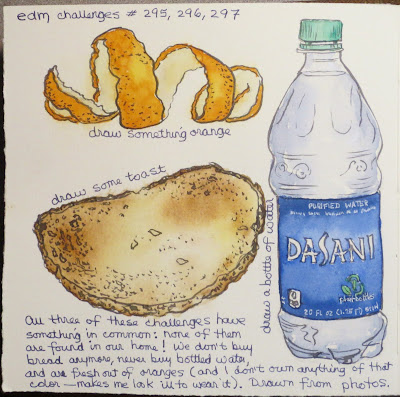 edm challenges # 295, 296, 297
draw something orange
draw some toast
draw a bottle of water
PURIFIED WATER
DASANI
plantbottle
20 FL OZ (1.25 PT) 591 mL
All three of these challenges have
something in common: none of them
are found in our home! We don't buy
bread anymore, never buy bottled water,
and are fresh out of oranges (and I don't own anything of that
color—makes me look ill to wear it). Drawn from photos.